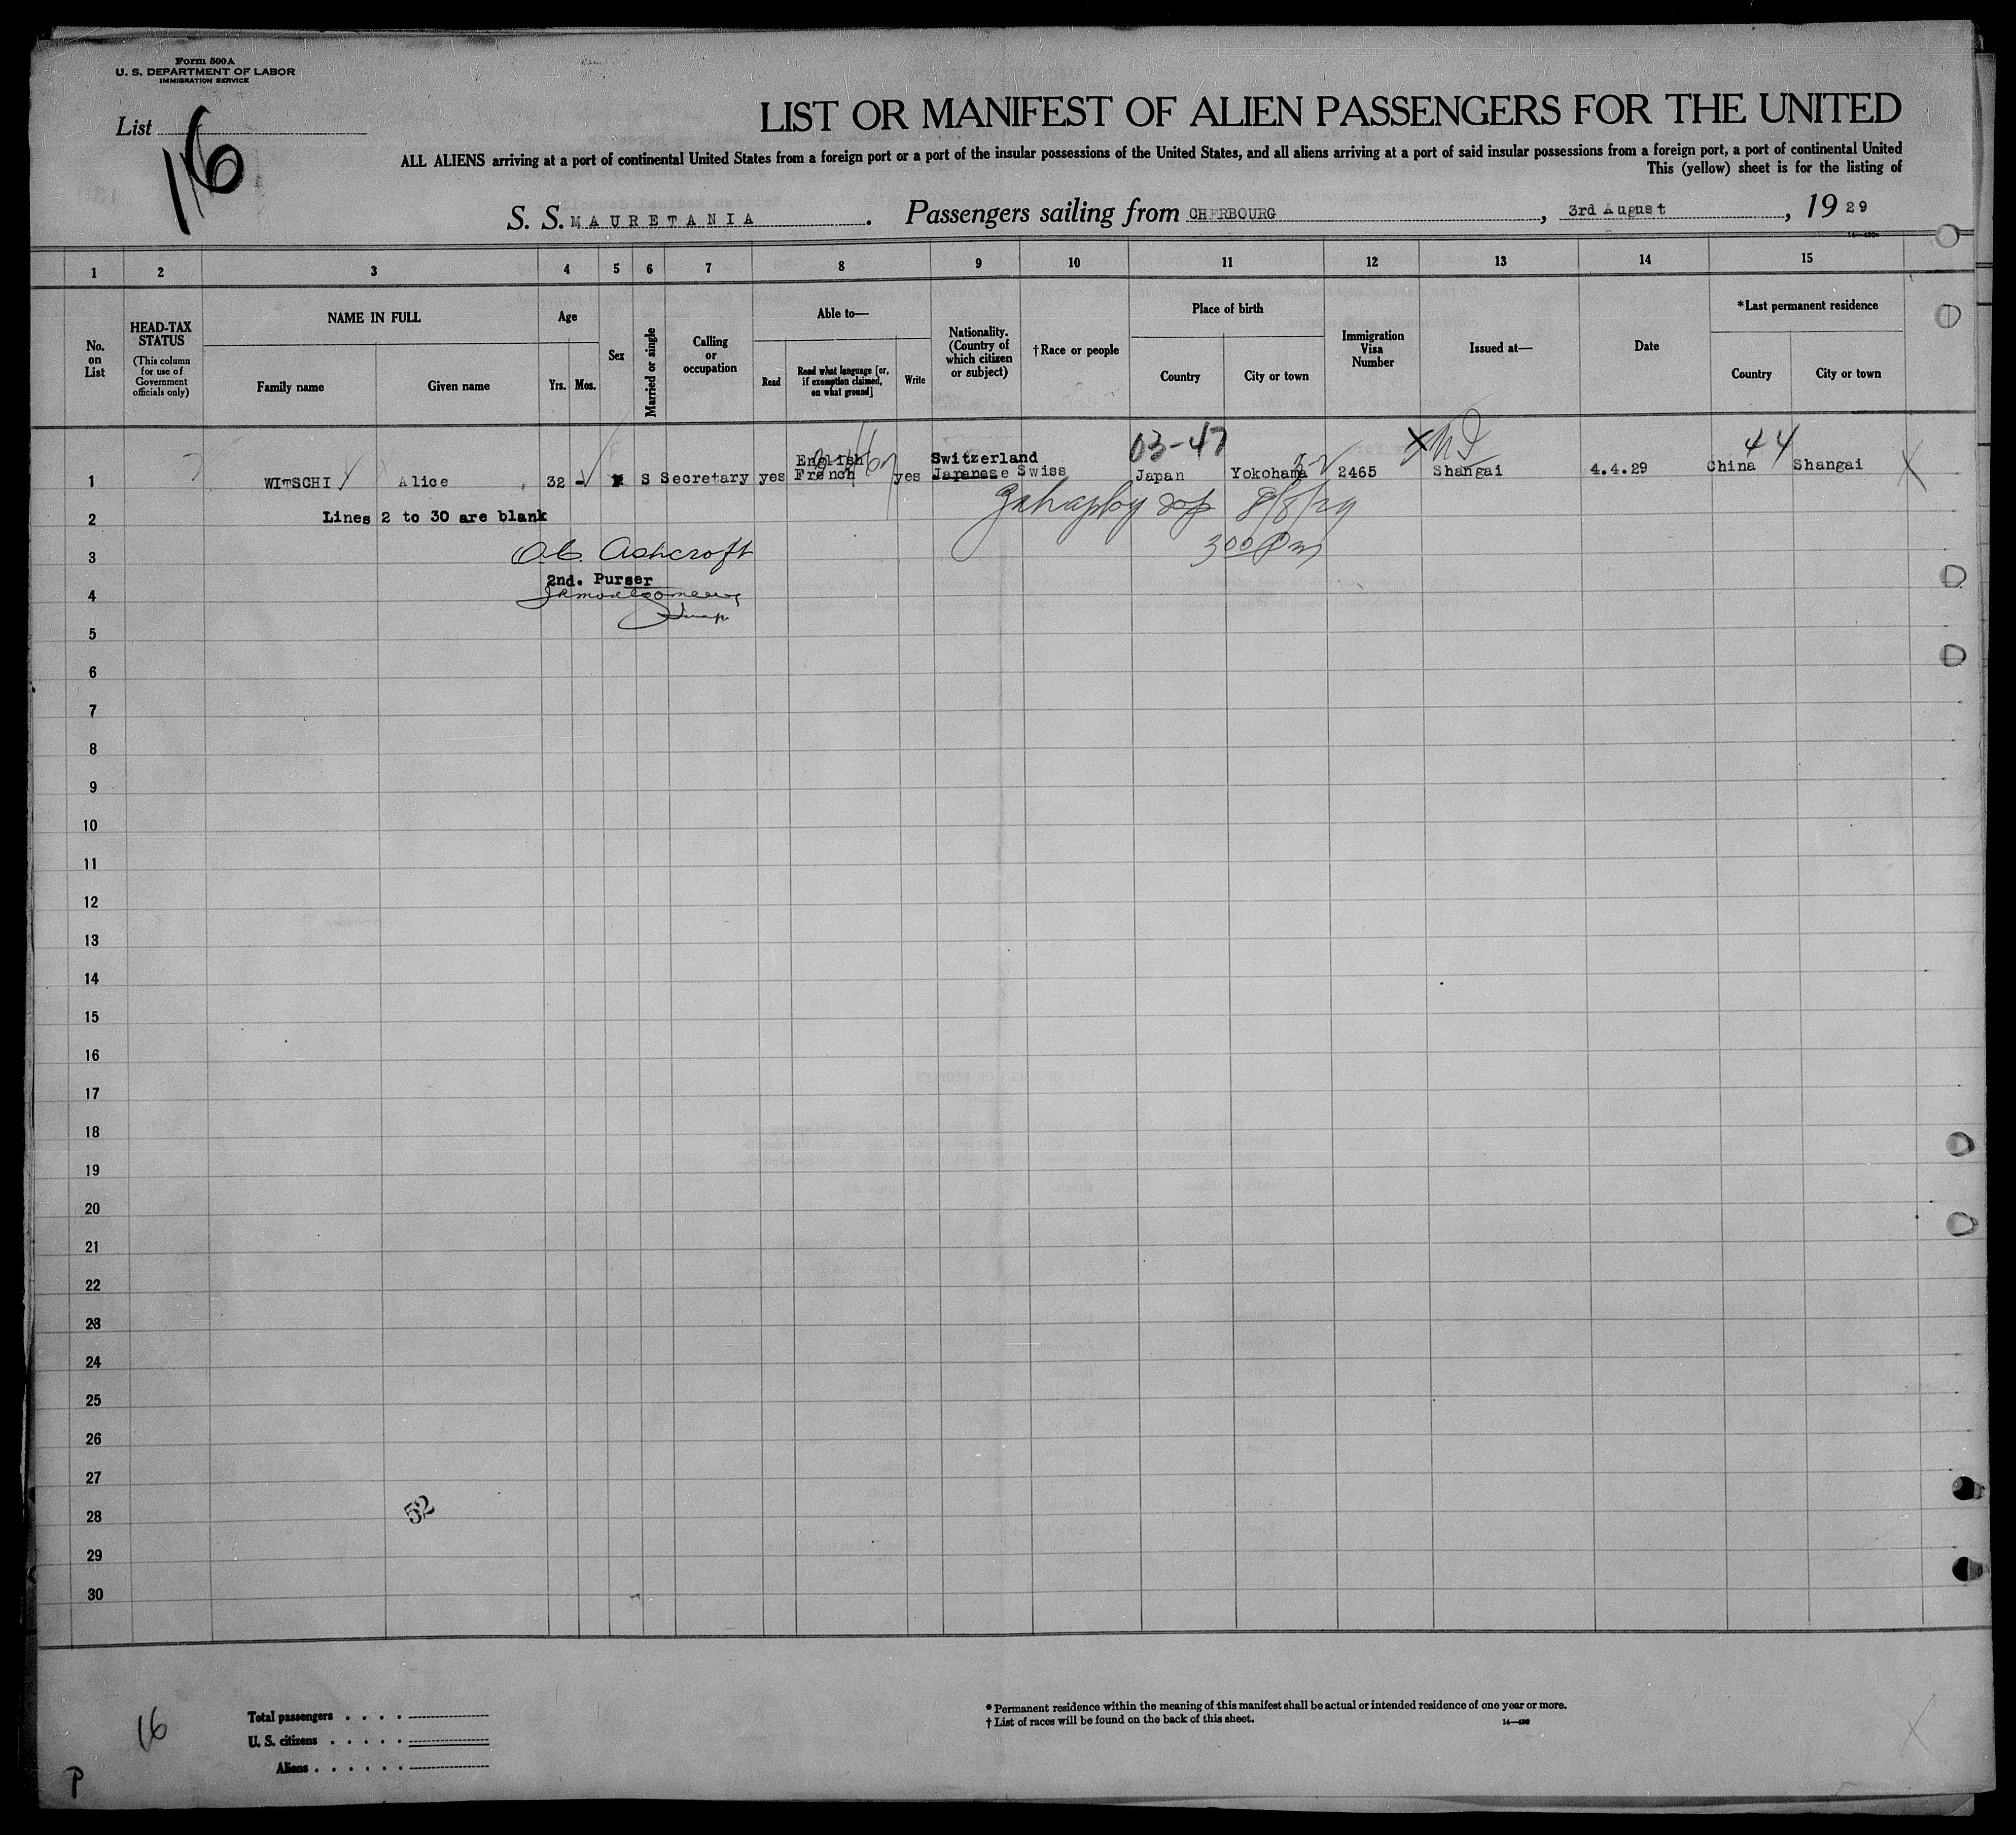 Form 500A
U. S. DEPARTMENT OF LABOR
IMMIGRATION SERVICE
List
16
LIST OR MANIFEST OF ALIEN PASSENGERS FOR THE UNITED
ALL ALIENS arriving at a port of continental United States from a foreign port or a port of the insular possessions of the United States, and all aliens arriving at a port of said insular possessions from a foreign port, a port of continental United
This (yellow) sheet is for the listing of
S. S. MAURETANIA. Passengers sailing from CHERBOURG, 3rd August, 19 29
1 2 3 4 5 6 7 8 9 10 11 12 13 14 15
No. on List
HEAD-TAX STATUS
(This column for use of Government officials only)
NAME IN FULL
Family name Given name
Age
Yrs. Mos.
Sex
Married or single
Calling or occupation
Able to—
Read
Read what language [or, if exemption claimed, on what ground]
Write
Nationality. (Country of which citizen or subject)
†Race or people
Place of birth
Country City or town
Immigration Visa Number
Issued at—
Date
*Last permanent residence
Country City or town
03-47 44
English Switzerland
1 WITSCHI Alice 32 - S Secretary yes French yes Japanese Swiss Japan Yokohama 2465 Shangai 4.4.29 China Shangai
2 Lines 2 to 30 are blank
8/8/29
3 Ashcroft
300 Pm
2nd. Purser
4
5
6
7
8
9
10
11
12
13
14
15
16
17
18
19
20
21
22
23
24
25
26
27
28
52
29
30
16
Total passengers . . . .
U. S. citizens . . . . .
Aliens . . . . . .
P
* Permanent residence within the meaning of this manifest shall be actual or intended residence of one year or more.
† List of races will be found on the back of this sheet.
14—430